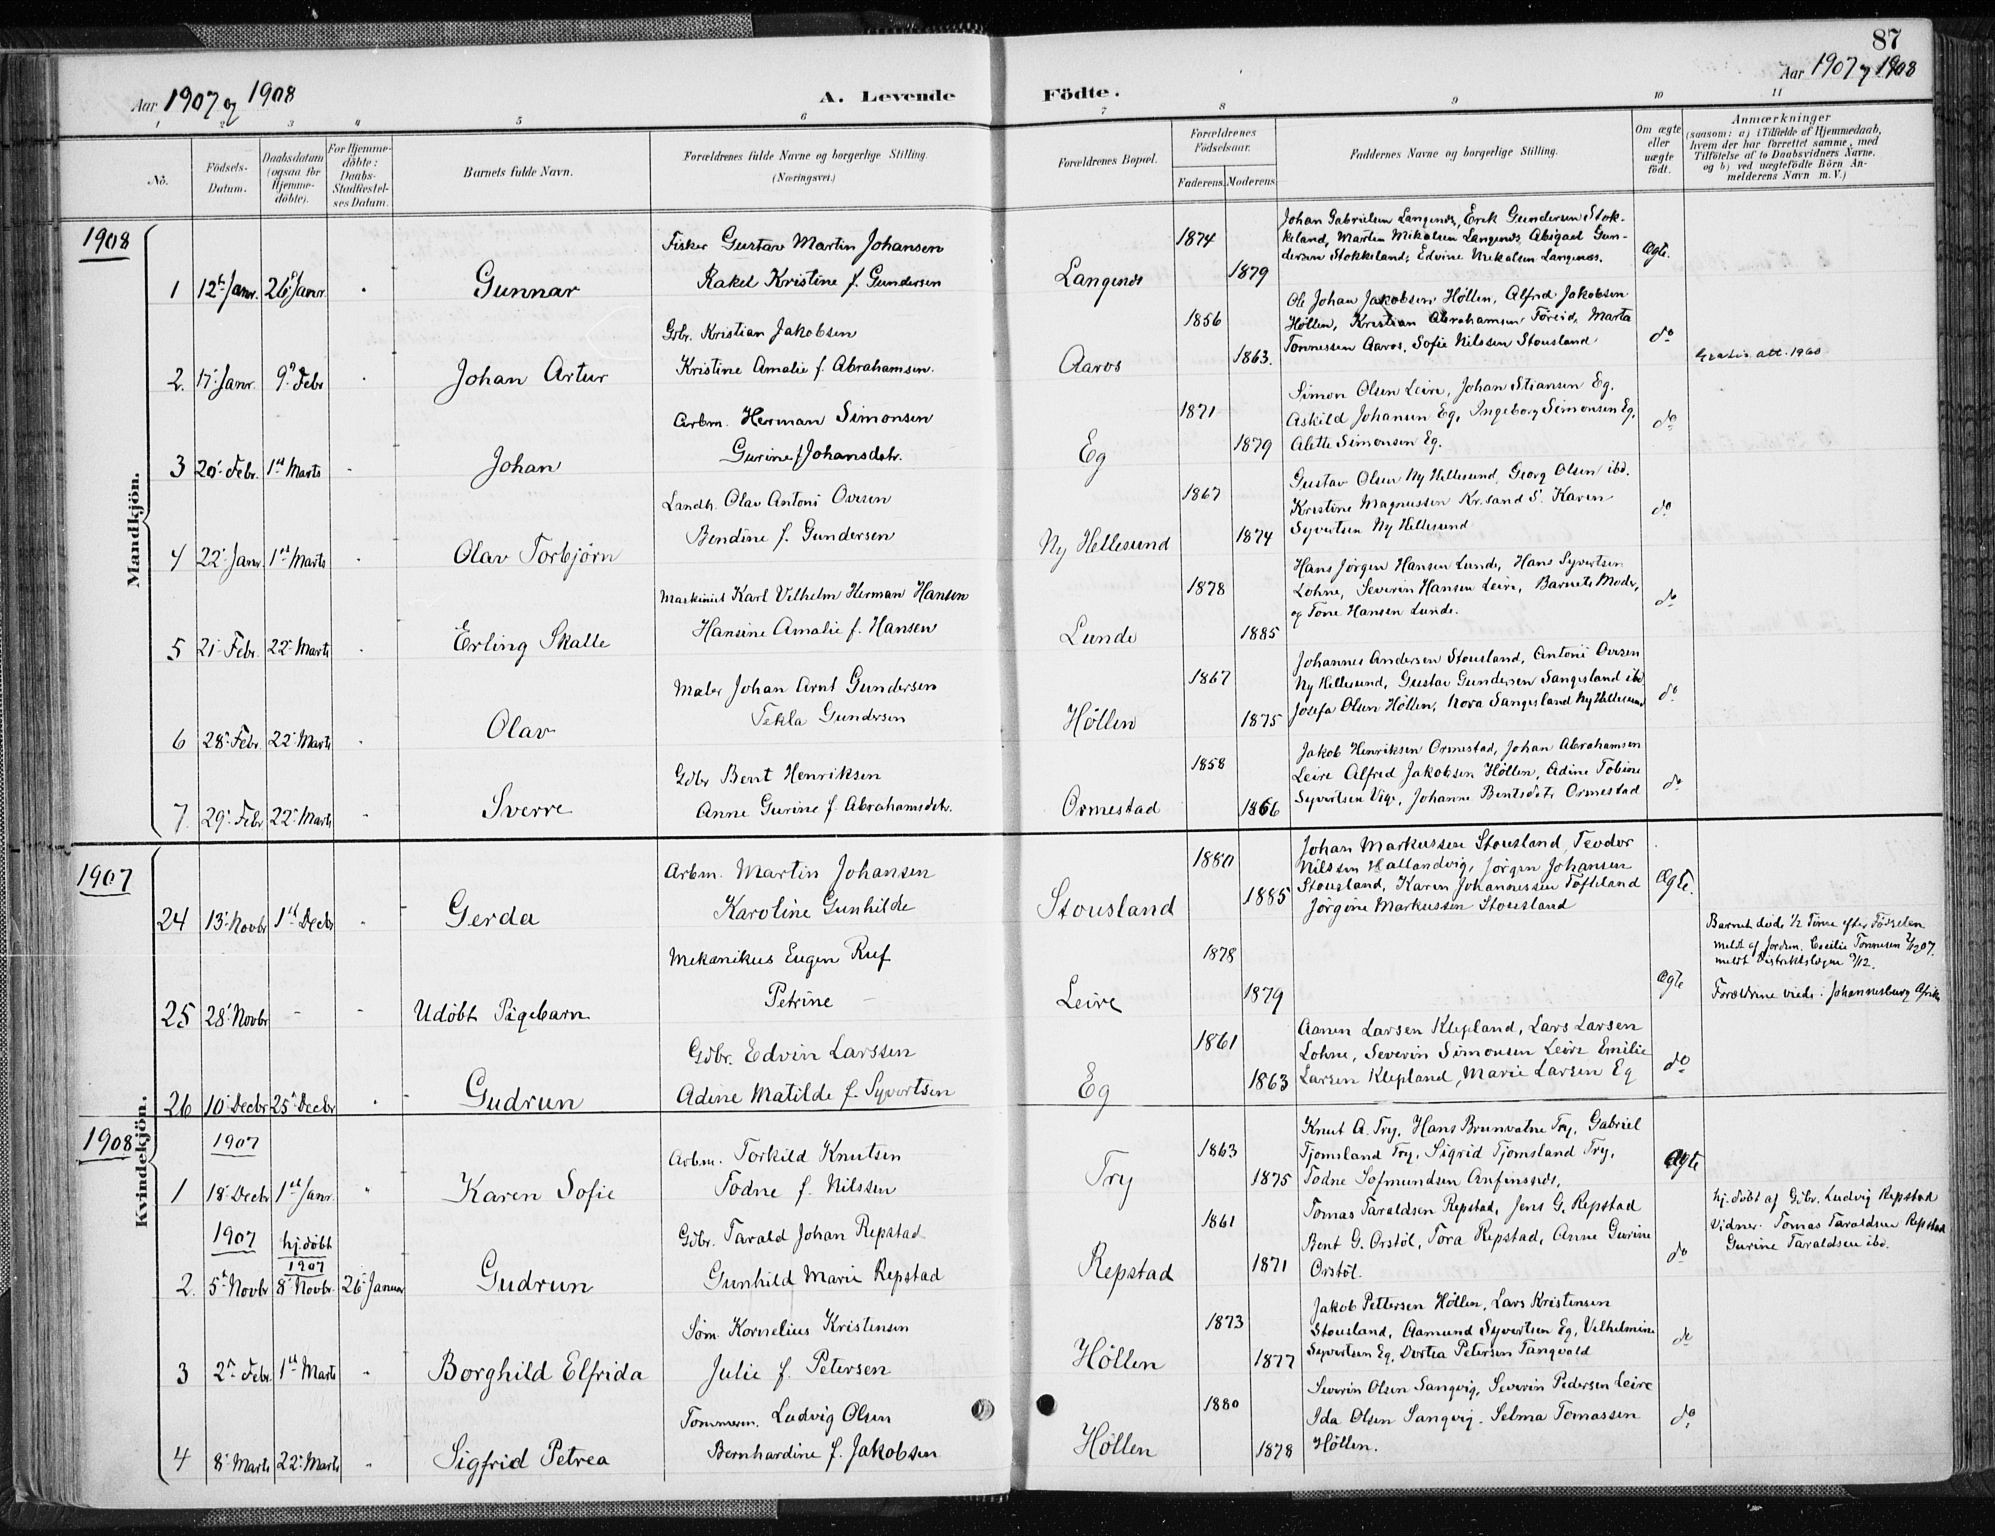 87
Aar 1907 og 1908
A. Levende Födte.
Aar 1907 og 1908
1 2 3 4 5 6 7 8 9 10 11
No.
Födsels-Datum.
Daabsdatum (ogsaa for Hjemme-döbte).
For Hjemme-döbte: Daabs-Stadfæstel-ses Datum.
Barnets fulde Navn.
Forældrenes fulde Navne og borgerlige Stilling.
(Næringsvei.)
Forældrenes Bopæl.
Forældrenes Födselsaar.
Faderens. Moderens.
Faddernes Navne og borgerlige Stilling.
Om ægte eller uægte födt.
Anmærkninger
(saasom: a) i Tilfælde af Hjemmedaab,
hvem der har forrettet samme, med
Tilföielse af to Daabsvidners Navne.
og b) ved uægtefödte Börn An-
melderens Navn m. V.)
1908
Mandkjön.
1 12te Janr. 26 Janr. Gunnar
Fisker Gustav Martin Johansen
Rakel Kristine f. Gundersen
Langenes 1874 1879
Johan Gabrielsen Langenes, Erik Gundersen Stok-
keland, Martin Mikalsen Langenes, Abigael Gun-
dersen Stokkeland, Edvine Mikalsen Langenæs.
Ægte.
2. 17. Janr. 9. Febr. Johan Artur
Gbr. Kristian Jakobsen
Kristine Amalie f. Abrahamsen.
Aaros 1856 1863.
Ole Johan Jakobsen Høllen, Alfred Jakobsen
Høllen, Kristian Abrahamsen Töreid, Marta
Tönnessen Aaros, Sofie Nilssen Stousland
do
Gratis att. 1960
3 20. Febr. 1st Marts Johan
Arbm. Herman Simonsen
Gurine f. Johansdtr.
Eg 1871 1879
Simon Olsen Leire, Johan Stiansen Eg.
Askild Johansen Eg, Ingeborg Simonsen Eg,
Alette Simonsen Eg.
do
4 22. Janr. 1st Marts Olav Torbjörn
Landh. Olav Antoni Ovesen
Bendine f. Gundersen
Ny Hellesund 1867 1874
Gustav Olsen Ny Hellesund, Georg Olsen ibd.
Kristine Magnussen Kr.sand S. Karen
Syvertsen Ny Hellesund
do
5 21. Febr. 22. Marts Erling Skalle
Maskinist Karl Vilhelm Herman Hansen
Hansine Amalie f. Hansen
Lunde 1878 1885
Hans Jörgen Hansen Lunde, Hans Syvertsen
Lohne, Severin Hansen Leire, Barnets Moder,
og Tone Hansen Lunde.
do
6 28. Febr. 22. Marts Olav
Maler Johan Arnt Gundersen
Tekla Gundersen
Höllen 1867 1875
Johannes Andersen Stousland, Antoni Ovesen
Ny Hellesund, Gustav Gundersen Sangesland ibd
Josefa Olsen Höllen, Nora Sangesland Ny Hellesund
do
7. 29. Febr. 22. Marts Sverre
Gdbr Bent Henriksen
Anne Gurine f. Abrahamsdtr.
Ormestad 1858 1866
Jakob Henriksen Ormestad, Johan Abrahamsen
Leire Alfred Jakobsen Höllen, Adine Tobine
Syvertsen Vige, Johanne Bentsdtr. Ormestad
do
1907
Kvindekjön.
24 13. Novbr 1st Decbr Gerda
Arbm. Martin Johansen
Karoline Gunhilde
Stousland 1880 1885
Johan Markussen Stousland, Teodor
Nilssen Hallandvig, Jörgen Johansen
Stousland, Karen Johannessen Tofteland
Jörgine Markussen Stousland
Ægte.
25 28. Novbr - - Udöbt Pigebarn
Mekanikus Eugen Ruf
Petrine —
Leire 1878 1879
Ægte
Barnet døde 1/2 Time efter Födselen
meldt af Jordm. Cecilie Tönnesen 2/12 07.
meldt Distriktslægen 3/12.
Forældrene viede i Johannesburg Afrika
26 10. Decbr 25. Decbr Gudrun
Gdbr. Edvin Larssen
Adine Matilde f. Syvertsen
Eg 1861 1863
Aanen Larsen Klepland, Lars Larsen
Lohne, Severin Simonsen Leire Emilie
Larsen Klepland, Marie Larsen Eg
do
1908
1907
1 18. Decbr 1st Janr. Karen Sofie
Arbm. Torkild Knutsen
Todne f. Nilssen
Try 1863 1875
Knut A. Try, Hans Brunvatne Try, Gabriel
Tjomsland Try, Sigrid Tjomsland Try,
Todne Sofmundsen Anfinsnes,
Ægte
1907
hj.döbt
1907
2. 5. Novbr 8. Novbr. 26. Januar Gudrun
Gdbr. Tarald Johan Repstad
Gunhild Marie Repstad
Repstad 1861 1871
Tomas Taraldsen Repstad, Jens G. Repstad
Bent G. Orstöl, Tora Repstad, Anne Gurine
Orstöl.
do
hj.döbt af Gdbr. Ludvig Repstad
Vidner. Tomas Taraldsen Repstad
Gurine Taraldsen ibd.
3 2. Febr. 1st Marts Borghild Elfrida
Söm. Kornelius Kristensen
Julie f. Petersen
Höllen 1873 1877
Jakob Pettersen Höllen, Lars Kristensen
Stousland, Aamund Syvertsen Eg, Vilhelmine
Syvertsen Eg, Dortea Petersen Tangvald
do
4 8. Marts 22. Marts Sigfrid Petrea
Tömmerm. Ludvig Olsen
Bernhardine f. Jakobsen
Höllen 1880 1878
Severin Olsen Sangvig, Severin Pedersen Leire
Ida Olsen Sangvig. Selma Tomassen
Höllen.
do